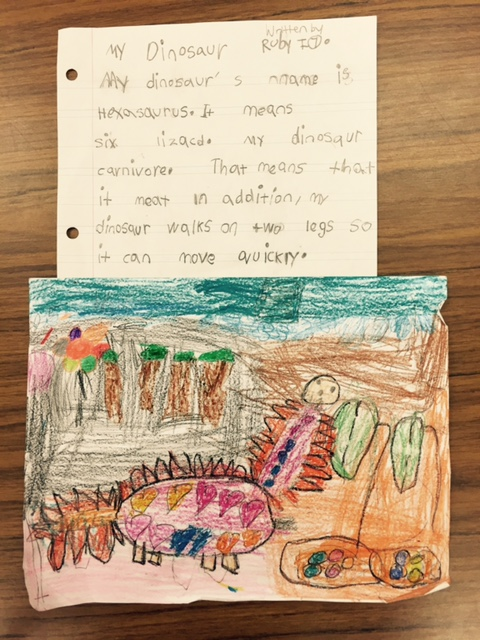 Written by
My Dinosaur Ruby I.D.
My dinosaur's nname is
Hexasaurus. It means
six lizacd. My dinosaur
carnivore. That means that
it meat In addition, my
dinosaur walks on two legs so
it can move quickly.